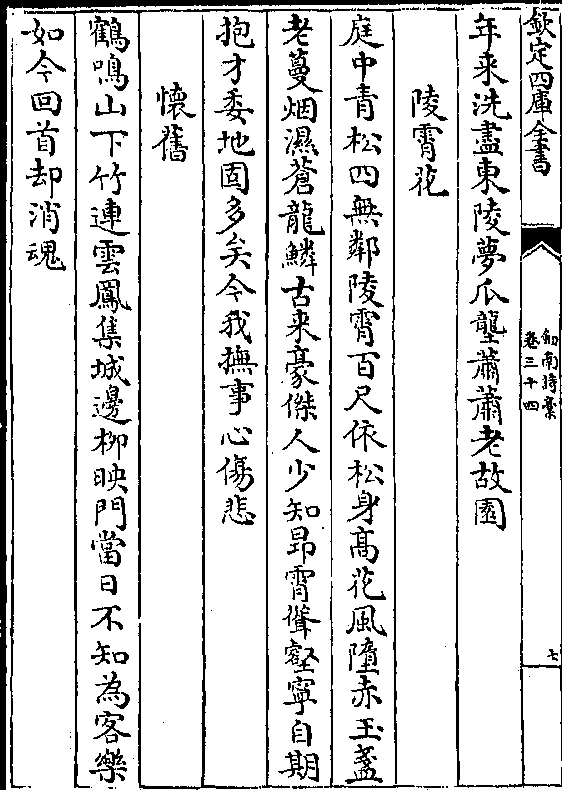 欽定四庫全書
劍南詩稾
卷三十四
七
年来洗盡東陵夢瓜壟蕭蕭老故園
陵霄花
庭中青松四無鄰陵霄百尺依松身髙花風墮赤玉盞
老蔓烟濕蒼龍鱗古来豪傑人少知昂霄聳壑寧自期
抱才委地固多矣今我撫事心傷悲
懷舊
鶴鳴山下竹連雲鳳集城邊栁映門當日不知為客樂
如今回首却消魂